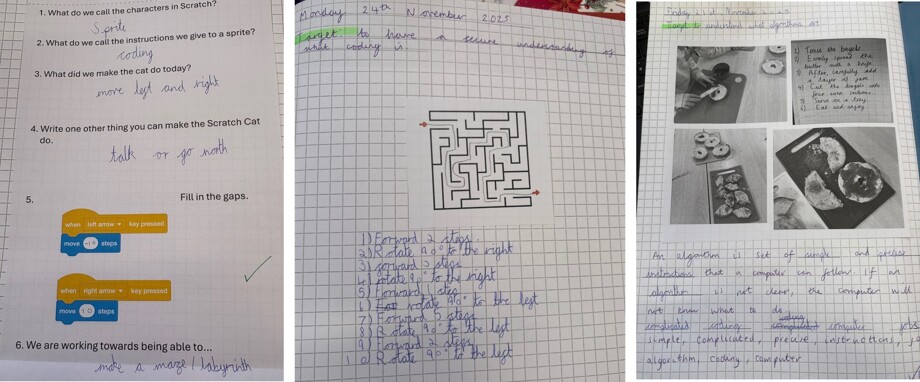 1. What do we call the characters in Scratch?
Sprite
2. What do we call the instructions we give to a sprite?
coding
3. What did we make the cat do today?
move left and right
4. Write one other thing you can make the Scratch Cat
do.
talk or go north
5. Fill in the gaps.
when left arrow key pressed
move -10 steps
when right arrow key pressed
move 10 steps
6. We are working towards being able to...
make a maze / labyrinth
Monday 24th November 2025
Target to have a secure understanding of
what coding is
1) Forward 2 steps.
2) Rotate 90° to the right
3) forward 3 steps
4) rotate 90° to the right
5) Forward 1 step
6) rotate 90° to the left
7) Forward 5 steps
8) Rotate 90° to the left
9) Forward 2 steps
10) Rotate 90° to the left
to understand what algorithms are
1) Toast the bagels
2) Evenly spread the
butter with a knife
3) After, carefully add
a layer of jam
4) Cut the bagels into
four even sections
5) Serve on a tray
6) Eat and enjoy
An algorithm is set of simple and precise
instructions that a computer can follow. If an
algorithm is not clear, the computer will
not know what to do
complicated coding computer
simple, complicated, precise, instructions,
algorithm, coding, computer